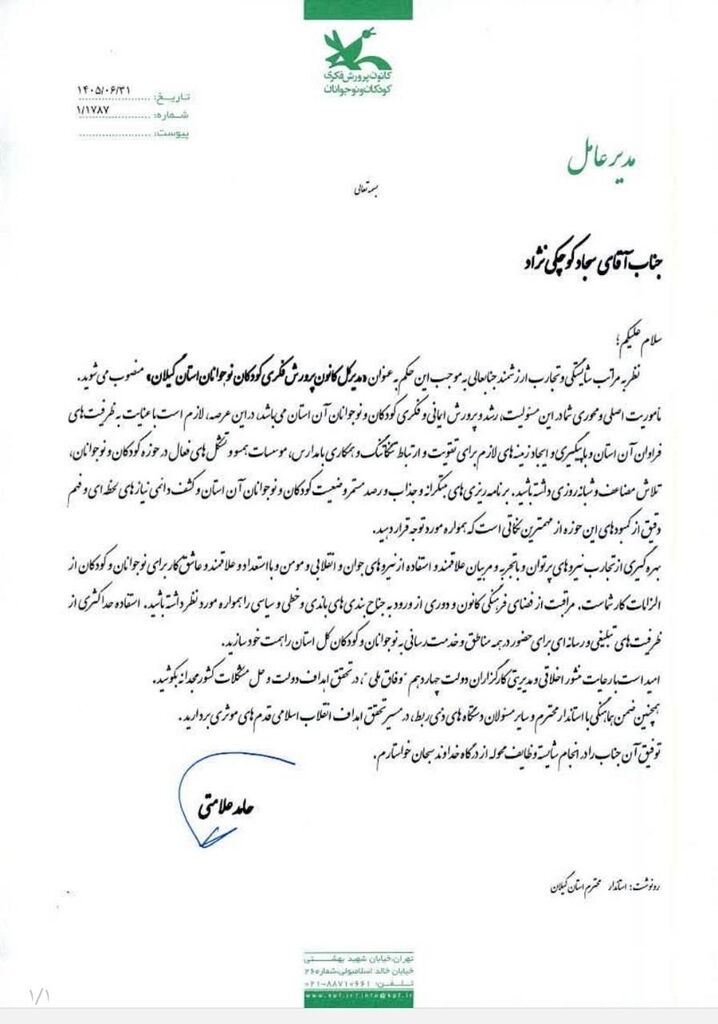 کانون پرورش فکری
کودکان و نوجوانان
تاریخ: ۱۴۰۵/۰۶/۳۱
شماره: ۱/۱۷۸۷
پیوست:
مدیرعامل
بسمه تعالی
جناب آقای سجاد کوچکی نژاد
سلام علیکم؛
نظر به مراتب شایستگی و تجارب ارزشمند جنابعالی به موجب این حکم به عنوان «مدیرکل کانون پرورش فکری کودکان نوجوانان استان گیلان» منصوب می شوید.
ماموریت اصلی و محوری شما در این مسئولیت، رشد و پرورش ایمانی و فکری کودکان و نوجوانان آن استان می باشد، در این عرصه، لازم است با عنایت به ظرفیت های
فراوان آن استان و با پیگیری و ایجاد زمینه های لازم برای تقویت و ارتباط تنگاتنگ و همکاری با مدارس، موسسات همسو و تشکل های فعال در حوزه کودکان و نوجوانان،
تلاش مضاعف و شبانه روزی داشته باشید. برنامه ریزی های مبتکرانه و جذاب و رصد مستمر وضعیت کودکان و نوجوانان آن استان و کشف دائمی نیازهای لحظه ای و فهم
دقیق از کمبودهای این حوزه از مهمترین نکاتی است که همواره مورد توجه قرار دهید.
بهره گیری از تجارب نیروهای پرتوان و باتجربه و مربیان علاقمند و استفاده از نیروهای جوان و انقلابی و مومن و با استعداد و علاقمند و عاشق کار برای نوجوانان و کودکان از
الزامات کار شماست. مراقبت از فضای فرهنگی کانون و دوری از ورود به جناح بندی های باندی و خطی و سیاسی را همواره مورد نظر داشته باشید. استفاده حداکثری از
ظرفیت های تبلیغی و رسانه ای برای حضور در همه مناطق و خدمت رسانی به نوجوانان و کودکان کل استان را همت خود سازید.
امید است با رعایت منشور اخلاقی و مدیریتی کارگزاران دولت چهاردهم "وفاق ملی"، در تحقق اهداف دولت و حل مشکلات کشور مجدانه بکوشید.
همچنین ضمن هماهنگی با استاندار محترم و سایر مسئولان دستگاه های ذی ربط، در مسیر تحقق اهداف انقلاب اسلامی قدم های موثری بردارید.
توفیق آن جناب را در انجام شایسته وظایف محوله از درگاه خداوند سبحان خواستارم.
حامد علامتی
رونوشت: استاندار محترم استان گیلان
تهران، خیابان شهید بهشتی
خیابان خالد اسلامبولی، شماره ۲۶
تلفن: ۰۲۱-۸۸۷۱۰۶۶۱
www.kpf.ir/info@kpf.ir
۱/۱